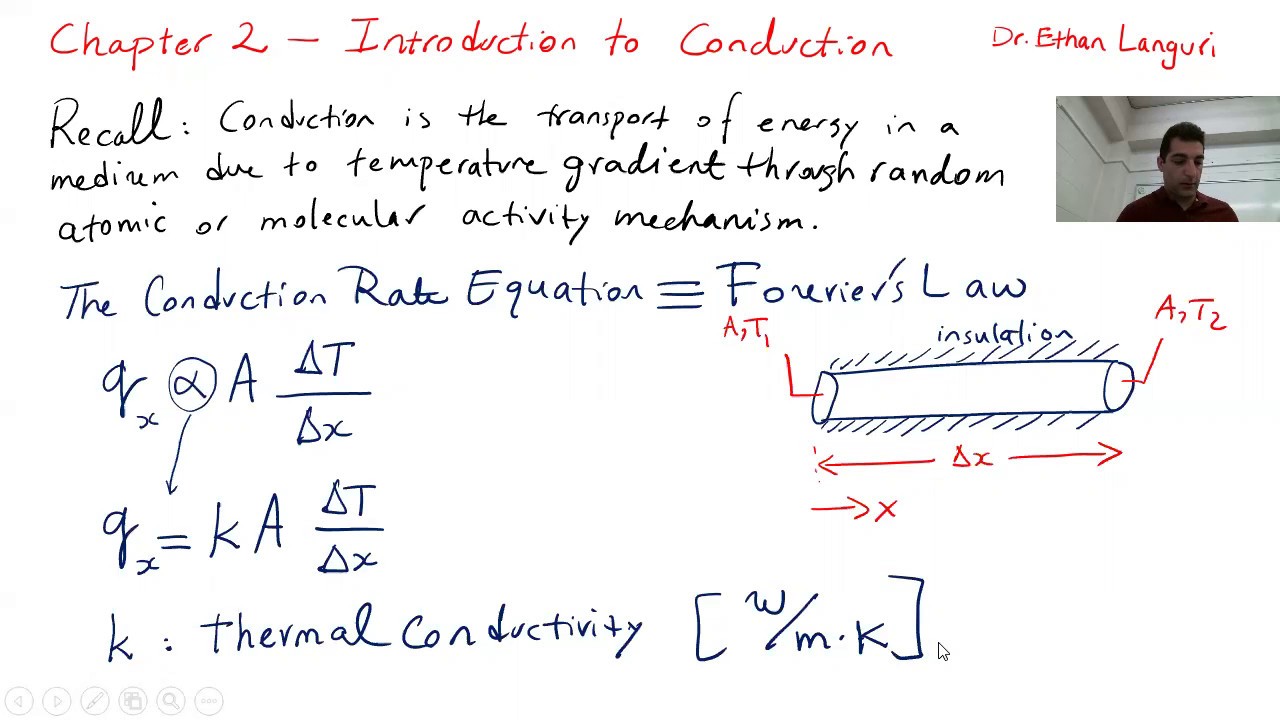 Chapter 2 – Introduction to Conduction
Dr. Ethan Languri
Recall: Conduction is the transport of energy in a
medium due to temperature gradient through random
atomic or molecular activity mechanism.
The Conduction Rate Equation ≡ Fourier's Law
A, T₁
insulation
A, T₂
qₓ ∝ A ΔT/Δx
Δx
→ x
qₓ = k A ΔT/Δx
k : thermal Conductivity [W/m·K]